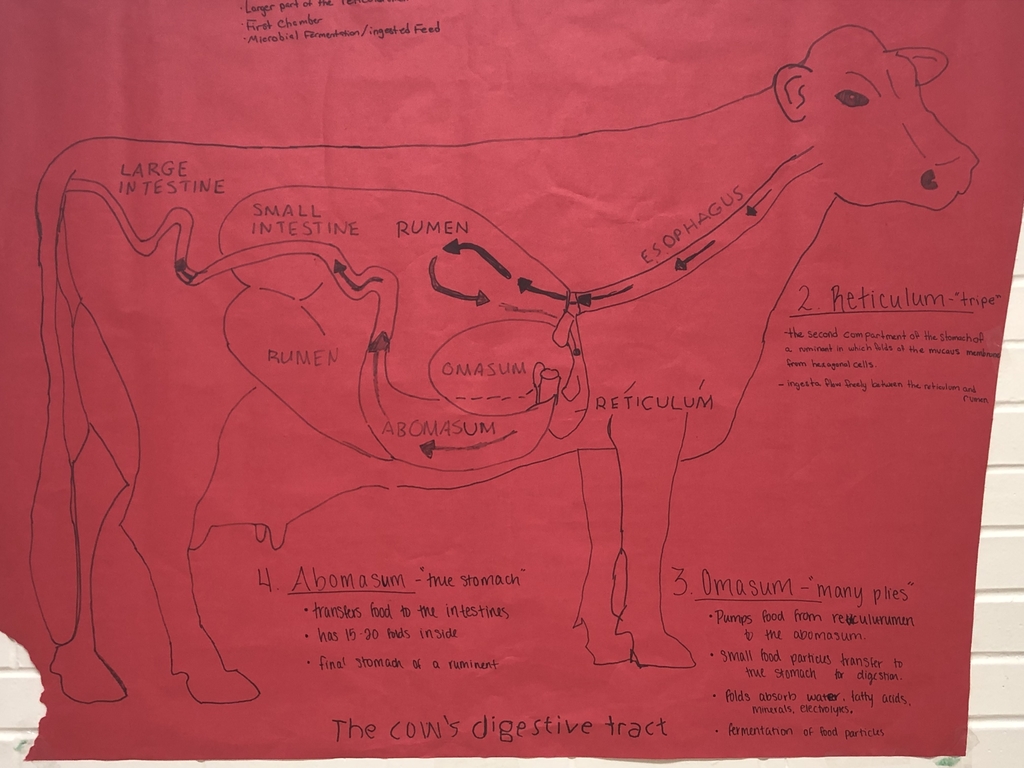 · Larger part of the
· First Chamber
· Microbial Fermentation/ingested Feed
LARGE
INTESTINE
SMALL
INTESTINE
RUMEN
ESOPHAGUS
2. Reticulum-"tripe"
-the second compartment of the stomach of
a ruminant in which folds of the mucous membrane
from hexagonal cells.
- ingesta flow freely between the reticulum and
rumen
RUMEN
OMASUM
RETICULUM
ABOMASUM
4. Abomasum -"true stomach"
• transfers food to the intestines
• has 15-20 folds inside
• final stomach of a ruminent
3. Omasum -"many plies"
• Pumps food from
to the abomasum.
• small food particles transfer to
true stomach for digestion.
• folds absorb water, fatty acids,
minerals, electrolytes.
• fermentation of food particles
The cow's digestive tract